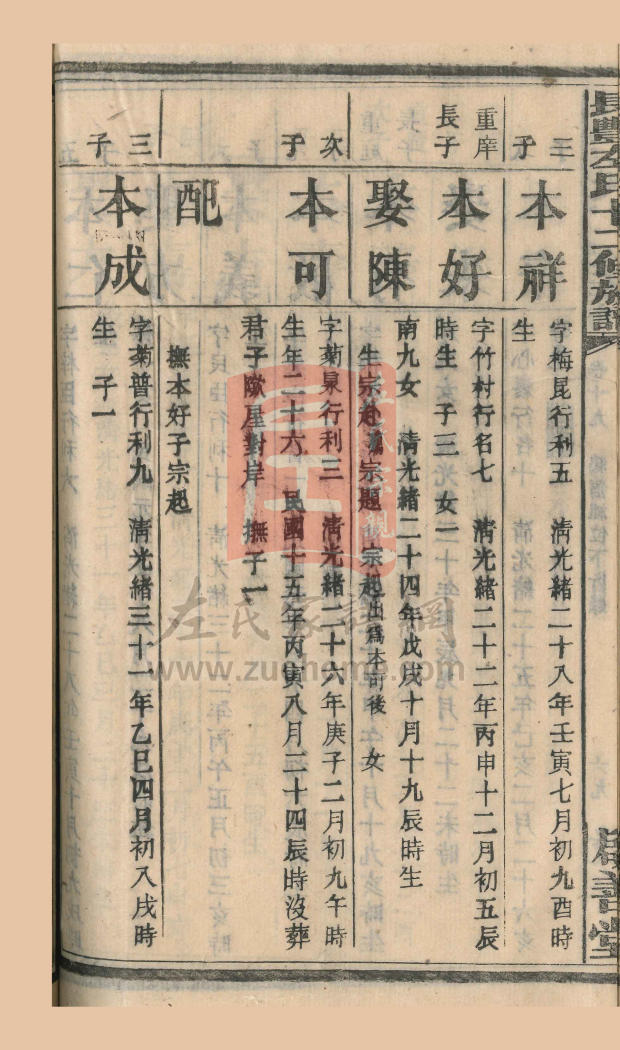 長豐左氏十二修族譜
三子
本祥
字梅昆行利五 清光緒二十八年壬寅七月初九酉時
生
重庠長子
本好
字竹村行名七 清光緒二十二年丙申十二月初五辰
時生 子三 女一
娶陳
南九女 清光緒二十四年戊戌十月十九辰時生
生宗赴 宗題 宗起出爲本可後 女
次子
本可
字菊泉行利三 清光緒二十六年庚子二月初九午時
生年二十六 民國十五年丙寅八月二十四辰時沒葬
君子墩屋對岸 撫子一
配
撫本好子宗起
三子
本成
字菊普行利九 清光緒三十一年乙巳四月初八戌時
生 子一
左氏家譜網
www.zuohome.com